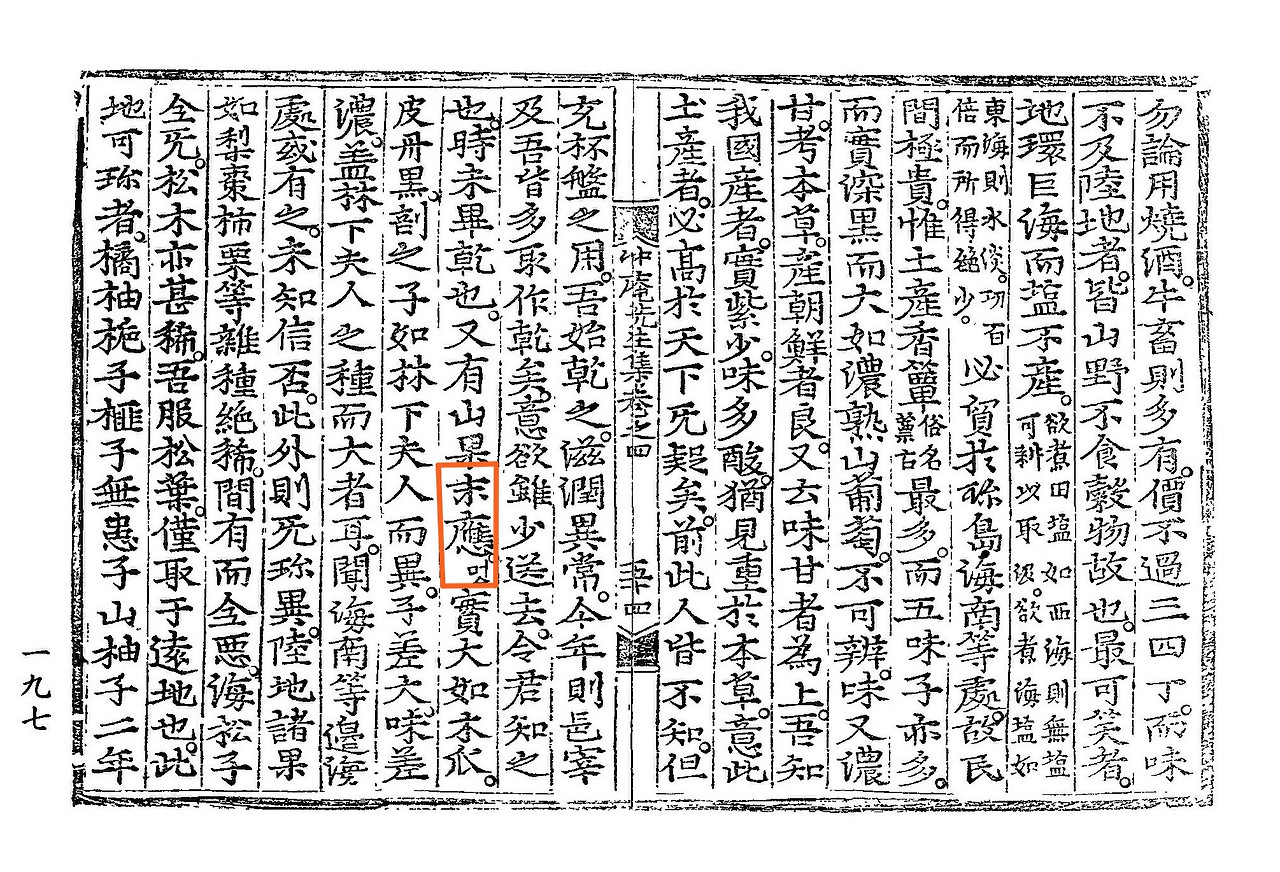 勿論用燒酒。牛畜則多有。價不過三四丁。而味
不及陸地者。皆山野不食穀物故也。最可笑者。
地環巨海而塩不産。欲煮田塩如西海則無塩可耕以取汲。欲煮海塩如
東海則水淡。功百倍而所得絶少。必貿於珎島海南等處。故民
間極貴。惟土産香簟俗名蔈古最多。而五味子亦多。
而實深黑而大如濃熟山葡萄。不可辨。味又濃
甘。考本草。産朝鮮者良。又云味甘者為上。吾知
我國産者。實紫少。味多酸。猶見重於本草。意此
土産者。必高於天下无疑矣。前此人皆不知。但
冲庵先生集卷之四 五十四
充杯盤之用。吾始乾之。滋潤異常。今年則邑宰
及吾皆多取作乾矣。意欲雖少送去。令君知之
也。時未畢乾也。又有山果末應。實大如木瓜。
皮丹黑。剖之子如林下夫人而異。子差大。味差
濃。盖林下夫人之種而大者耳。聞海南等邊海
處或有之。未知信否。此外則无珎異。陸地諸果
如梨棗柿栗等雜種絶稀。間有而全惡。海松子
全无。松木亦甚稀。吾服松葉。僅取于遠地也。此
地可珎者。橘柚梔子榧子無患子山柚子二年
一九七